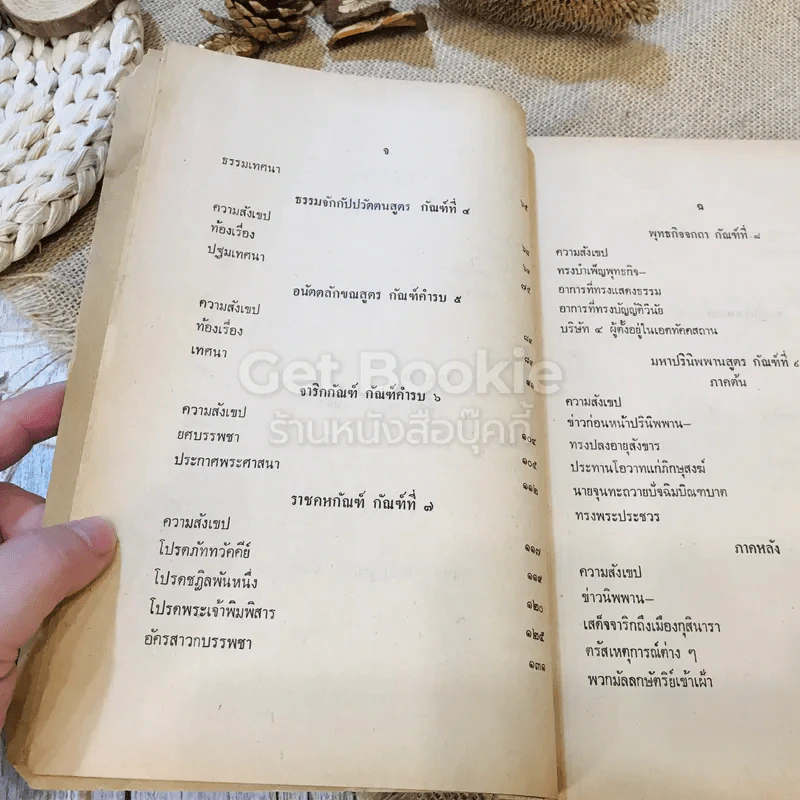 จ
ธรรมเทศนา
๖๕
ธรรมจักกัปปวัตตนสูตร กัณฑ์ที่ ๔
ความสังเขป
ท้องเรื่อง
ปฐมเทศนา
๗๕
อนัตตลักขณสูตร กัณฑ์คำรบ ๕
ความสังเขป
ท้องเรื่อง
เทศนา
จาริกกัณฑ์ กัณฑ์คำรบ ๖
ความสังเขป
ยศบรรพชา ๑๐๔
ประกาศพระศาสนา ๑๐๕
๑๑๒
ราชคหกัณฑ์ กัณฑ์ที่ ๗
ความสังเขป
โปรดภัททวัคคีย์ ๑๑๗
โปรดชฎิลพันหนึ่ง ๑๑๙
โปรดพระเจ้าพิมพิสาร ๑๒๐
อัครสาวกบรรพชา ๑๒๕
๑๓๑
ฉ
พุทธกิจจกถา กัณฑ์ที่ ๘
ความสังเขป
ทรงบำเพ็ญพุทธกิจ–
อาการที่ทรงแสดงธรรม
อาการที่ทรงบัญญัติวินัย
บริษัท ๔ ผู้ตั้งอยู่ในเอตทัคคสถาน
มหาปรินิพพานสูตร กัณฑ์ที่ ๙
ภาคต้น
ความสังเขป
ข่าวก่อนหน้าปรินิพพาน–
ทรงปลงอายุสังขาร
ประทานโอวาทแก่ภิกษุสงฆ์
นายจุนทะถวายปัจฉิมบิณฑบาต
ทรงพระประชวร
ภาคหลัง
ความสังเขป
ข่าวนิพพาน–
เสด็จจาริกถึงเมืองกุสินารา
ตรัสเหตุการณ์ต่าง ๆ
พวกมัลลกษัตริย์เข้าเฝ้า
Get Bookie
ร้านหนังสือบุ๊คกี้